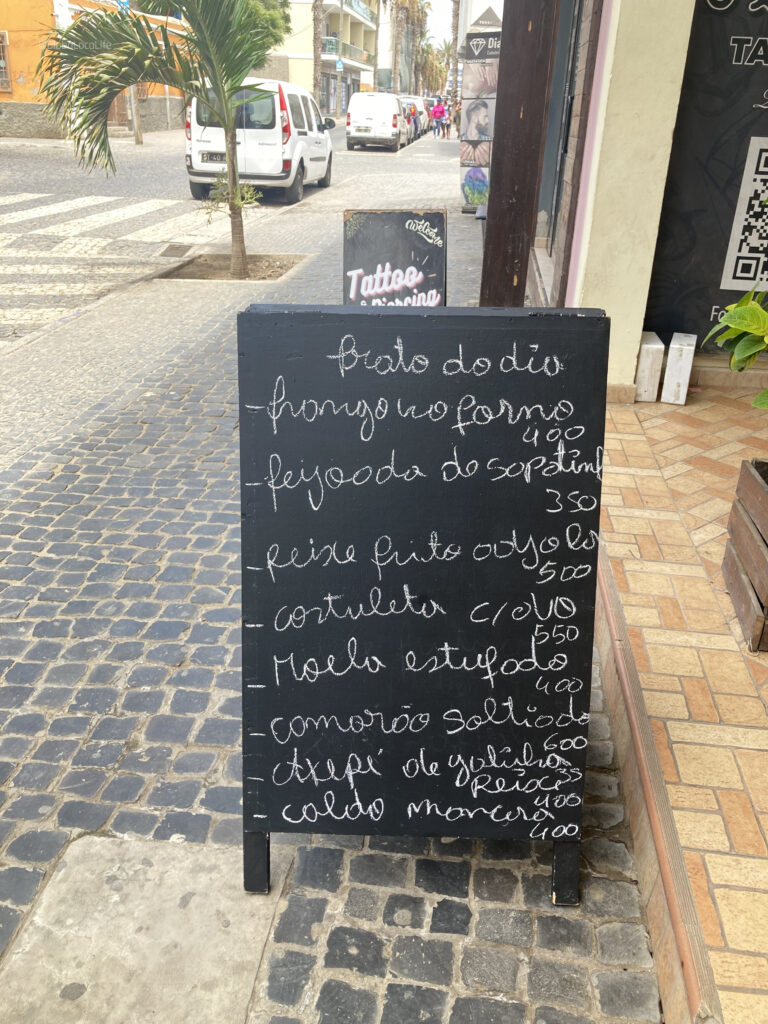 Welcome
Tattoo
& Piercing
prato do dia
- frango no forno
400
- feijoada de sapatinh
350
- peixe frito
500
- costuleta c/ovo
550
- Moela estufado
400
- camarão saltiado
600
- de galinha 35
Peixe
400
- caldo mancara
400
ST-40
Dia
TA